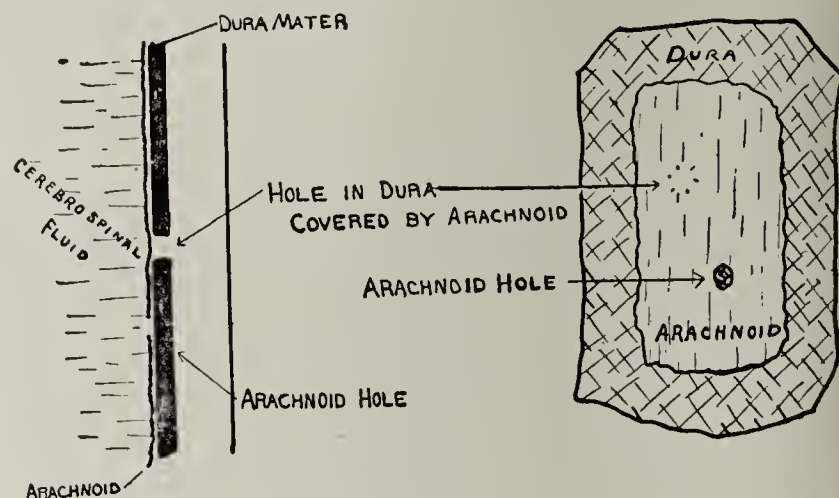 DURA MATER
CEREBROSPINAL
FLUID
HOLE IN DURA
COVERED BY ARACHNOID
ARACHNOID HOLE
ARACHNOID
DURA
ARACHNOID HOLE
ARACHNOID